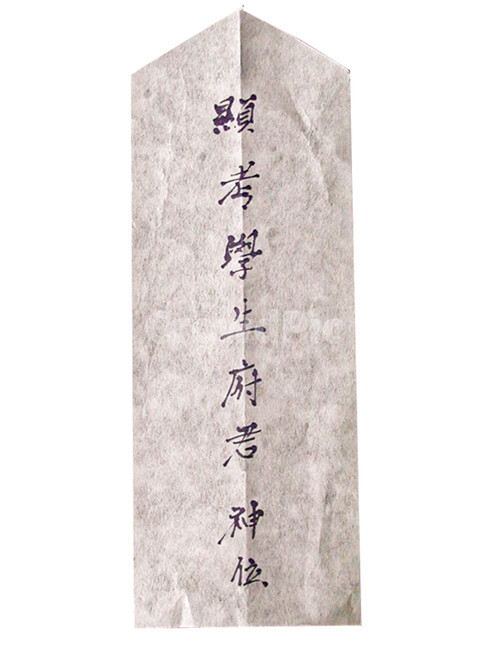 顯考學生府君 神位